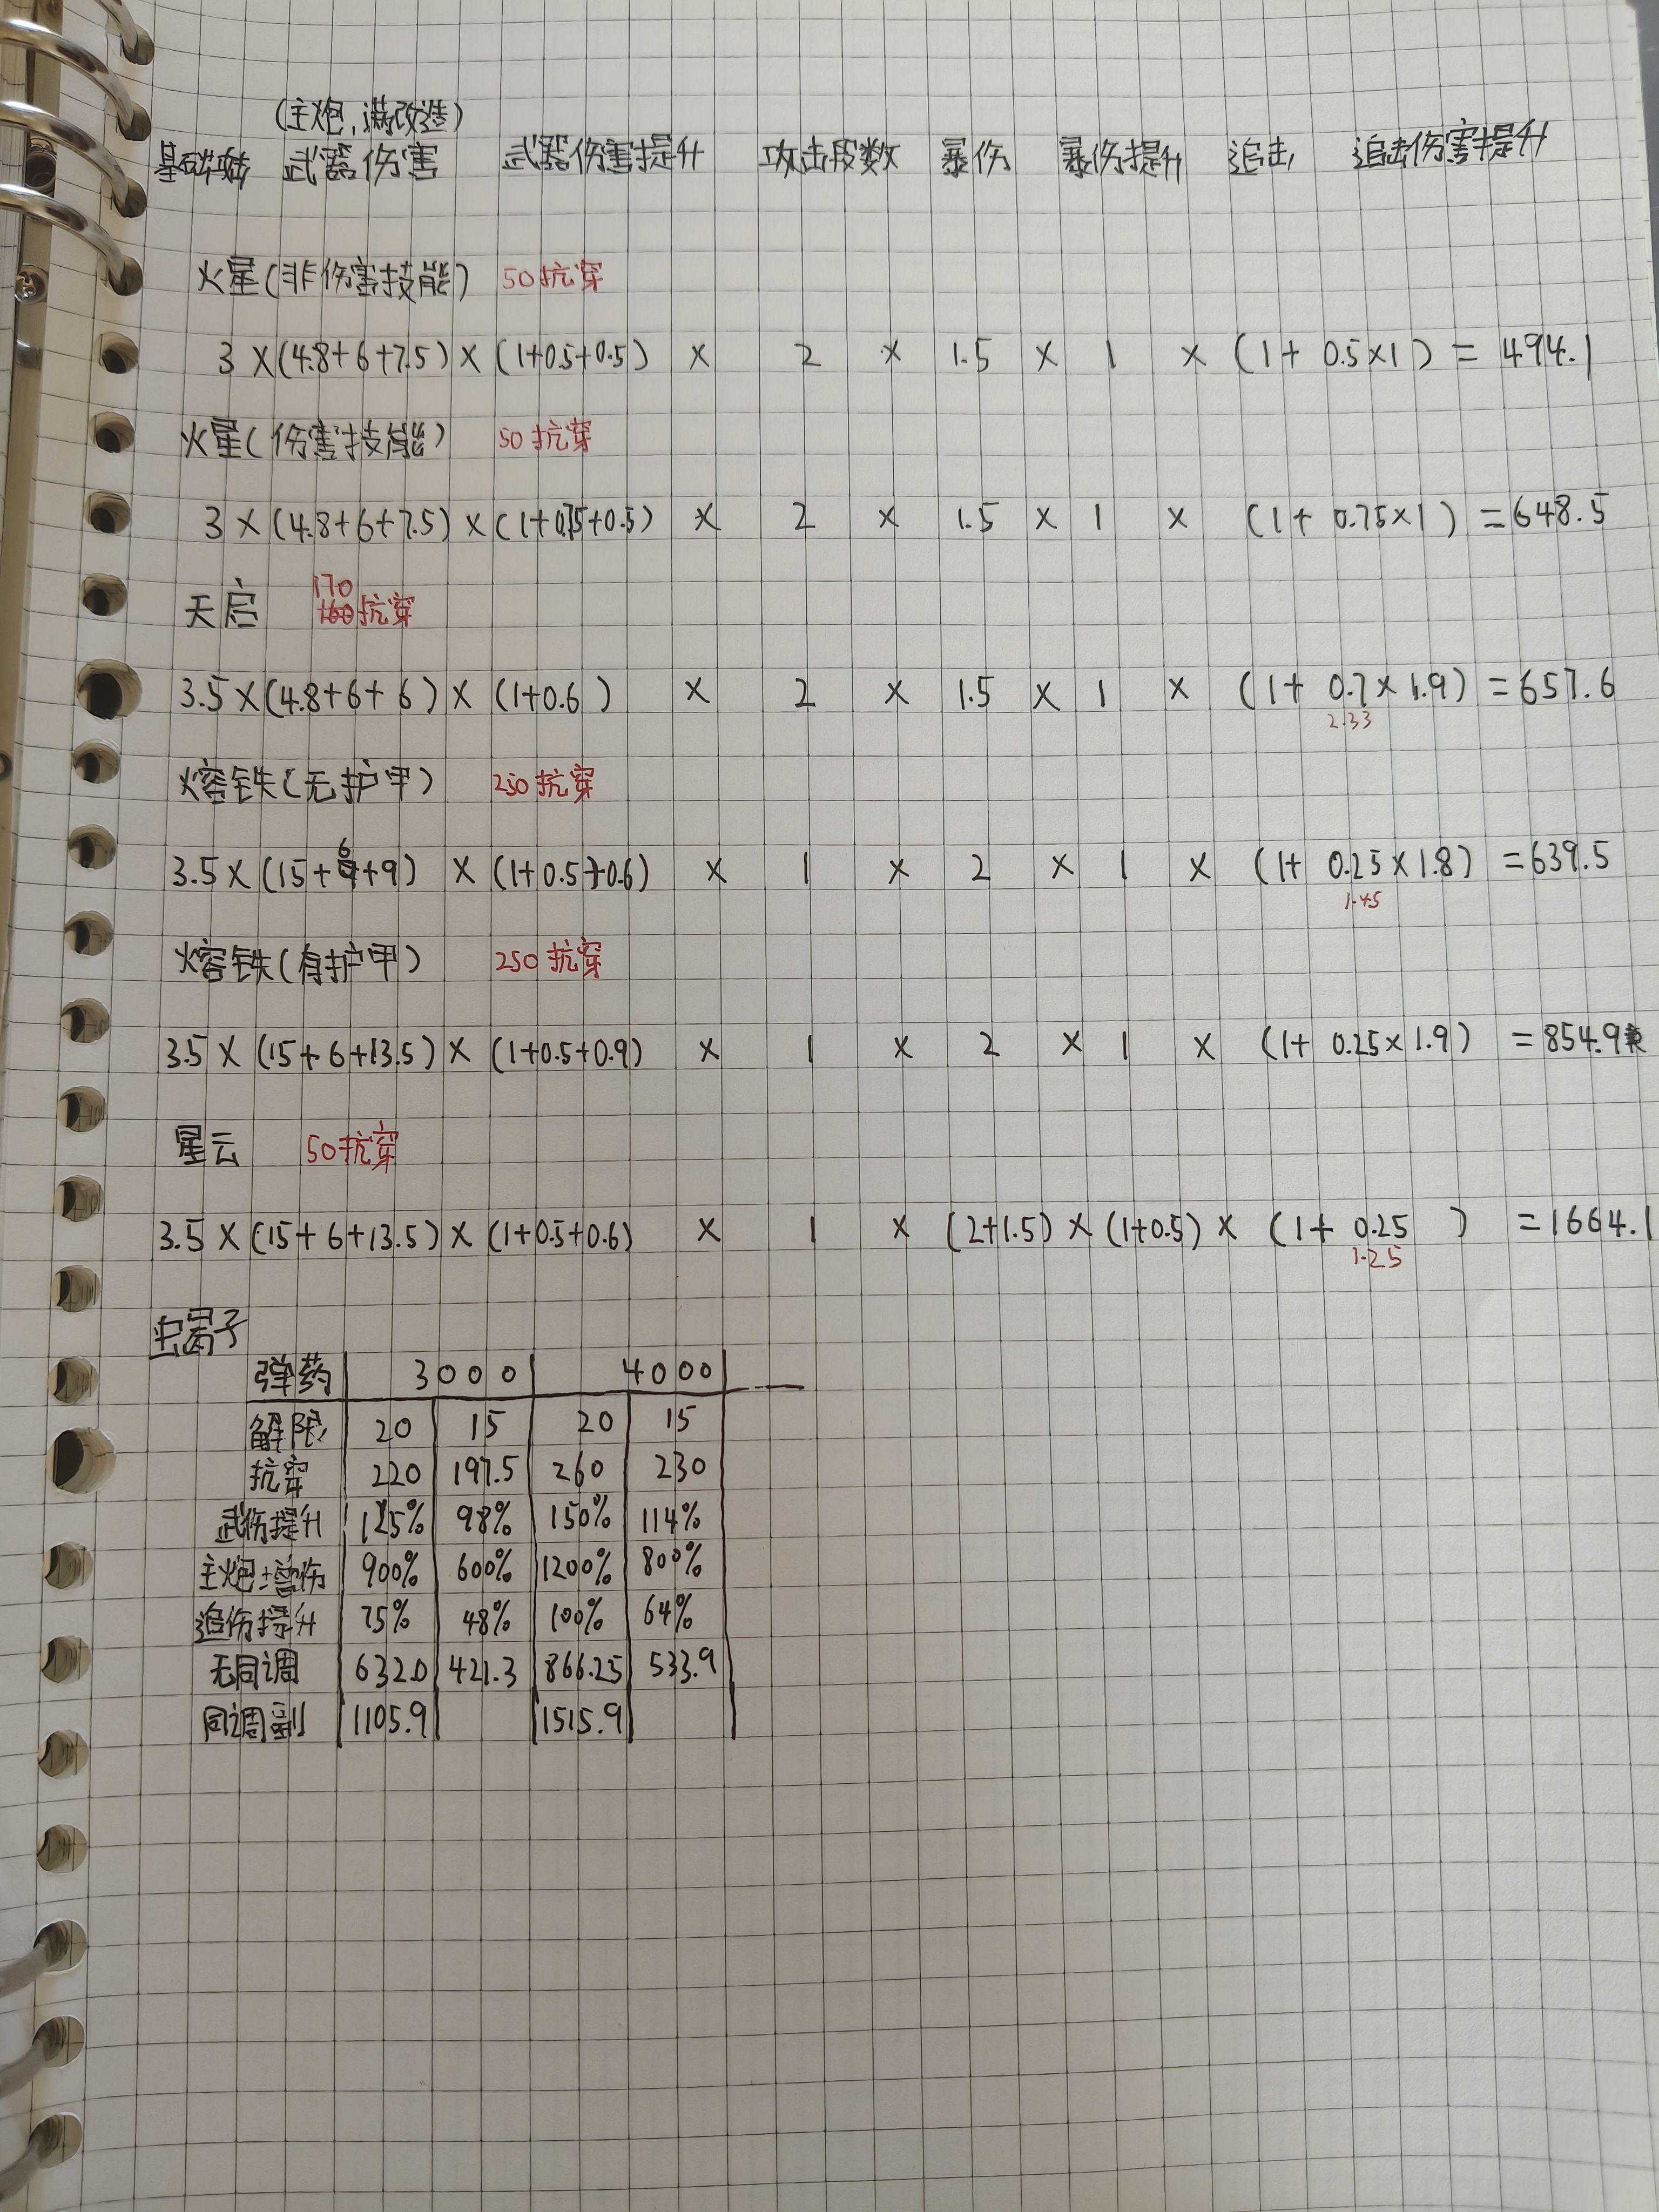 (主炮,满改造)
武器伤害 武器伤害提升 攻击段数 暴伤 暴伤提升 追击 追击伤害提升
火星(非伤害技能) 50抗穿
3×(4.8+6+7.5)×(1+0.5+0.5) × 2 × 1.5 × 1 × (1+0.5×1) = 494.1
火星(伤害技能) 50抗穿
3×(4.8+6+7.5)×(1+0.75+0.5) × 2 × 1.5 × 1 × (1+0.75×1) =648.5
170
天启 160抗穿
3.5×(4.8+6+6)×(1+0.6) × 2 × 1.5 × 1 × (1+0.7×1.9) =657.6
2.33
熔铁(无护甲) 250抗穿
3.5×(15+6+9) ×(1+0.5+0.6) × 1 × 2 × 1 × (1+0.25×1.8) =639.5
1.45
熔铁(有护甲) 250抗穿
3.5×(15+6+13.5)×(1+0.5+0.9) × 1 × 2 × 1 × (1+0.25×1.9) =854.9
星云 50抗穿
3.5×(15+6+13.5)×(1+0.5+0.6) × 1 × (2+1.5)×(1+0.5)×(1+0.25 ) =1664.1
1.25
弹药 3000 4000
解限 20 15 20 15
抗穿 220 197.5 260 230
武伤提升 125% 98% 150% 114%
主炮增伤 900% 600% 1200% 800%
追伤提升 75% 48% 100% 64%
无同调 632.0 421.3 866.25 533.9
同调 1105.9 1515.9